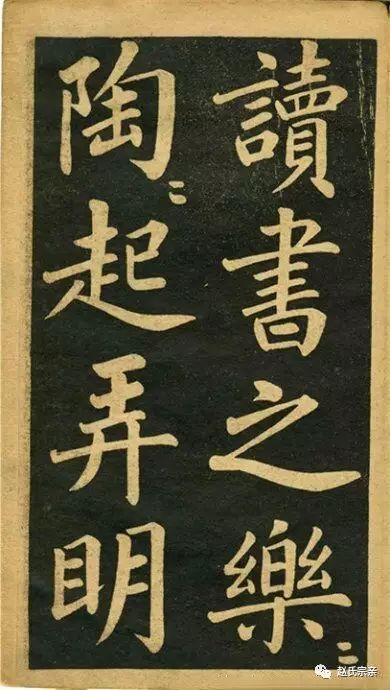 讀書之樂〻
陶〻起弄明
赵氏宗亲